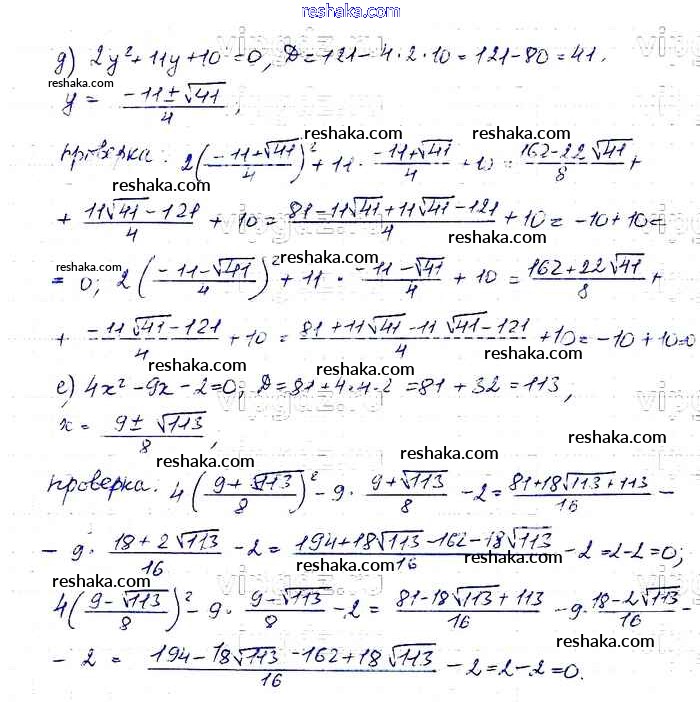 reshaka.com
д) 2y² + 11y + 10 = 0, D = 121 - 4·2·10 = 121 - 80 = 41.
reshaka.com reshaka.com
y = (-11 ± √41)/4;
reshaka.com
проверка: 2((-11+√41)/4)² + 11 · (-11+√41)/4 + 10 = (162-22√41)/8 +
reshaka.com reshaka.com
+ (11√41 - 121)/4 + 10 = (81 - 11√41 + 11√41 - 121)/4 + 10 = -10 + 10 =
reshaka.com
reshaka.com
= 0; 2((-11-√41)/4)² + 11 · (-11-√41)/4 + 10 = (162+22√41)/8 +
reshaka.com
+ (-11√41 - 121)/4 + 10 = (81 + 11√41 - 11√41 - 121)/4 + 10 = -10 + 10 = 0
reshaka.com reshaka.com
е) 4x² - 9x - 2 = 0; D = 81 + 4·4·2 = 81 + 32 = 113,
reshaka.com
x = (9 ± √113)/8,
reshaka.com reshaka.com
проверка: 4((9+√113)/8)² - 9 · (9+√113)/8 - 2 = (81+18√113+113)/16 -
reshaka.com
- 9 · (18+2√113)/16 - 2 = (194+18√113-162-18√113)/16 - 2 = 2-2 = 0;
reshaka.com reshaka.com
4((9-√113)/8)² - 9 · (9-√113)/8 - 2 = (81-18√113+113)/16 - 9 · (18-2√113)/16 -
reshaka.com reshaka.com
- 2 = (194-18√113-162+18√113)/16 - 2 = 2-2 = 0.
reshaka.com
reshaka.com